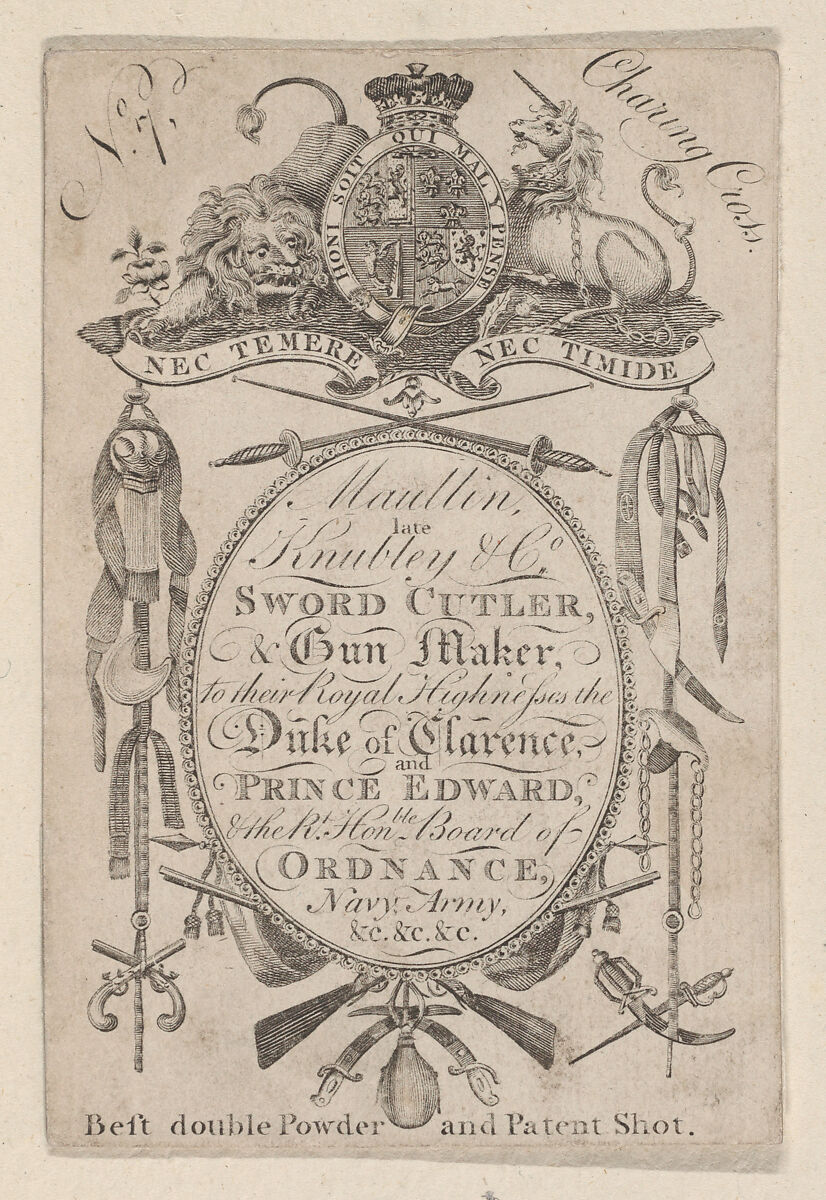 No. 7,
Charing Cross.
HONI SOIT QUI MAL Y PENSE
NEC TEMERE NEC TIMIDE
Maullin,
late
Knubley & Co.
SWORD CUTLER,
& Gun Maker,
to their Royal Highneſses the
Duke of Clarence,
and
PRINCE EDWARD,
& the Rt. Honble. Board of
ORDNANCE,
Navy, Army,
&c. &c. &c.
Beſt double Powder and Patent Shot.